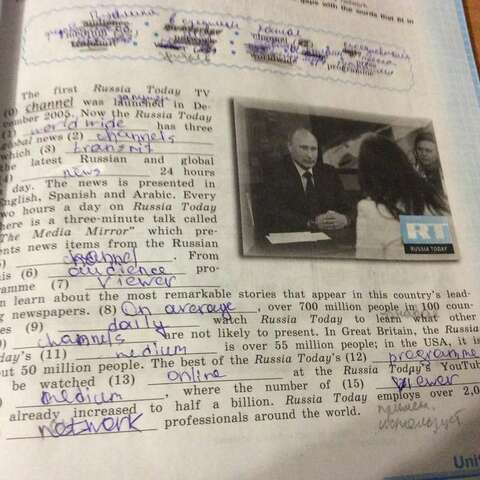 gaps with the words that fit in
audience
channel
programme
The first Russia Today TV
(0) channel was launched in De-
cember 2005. Now the Russia Today
(1) worldwide has three
global news (2) channels
which (3) transmit
the latest Russian and global
news 24 hours
a day. The news is presented in
English, Spanish and Arabic. Every
two hours a day on Russia Today
there is a three-minute talk called
"The Media Mirror" which pre-
ents news items from the Russian
5) channel. From
his (6) audience pro-
ramme (7) viewer
n learn about the most remarkable stories that appear in this country's lead-
g newspapers. (8) On average, over 700 million people in 100 coun-
es (9) daily watch Russia Today to learn what other
) channels are not likely to present. In Great Britain, the Russia
day's (11) medium is over 55 million people; in the USA, it is
out 50 million people. The best of the Russia Today's (12) programme
be watched (13) online at the Russia Today's YouTube
) medium, where the number of (15) viewer
already increased to half a billion. Russia Today employs over 2,0
network professionals around the world.
использует
RT
RUSSIA TODAY
Unit